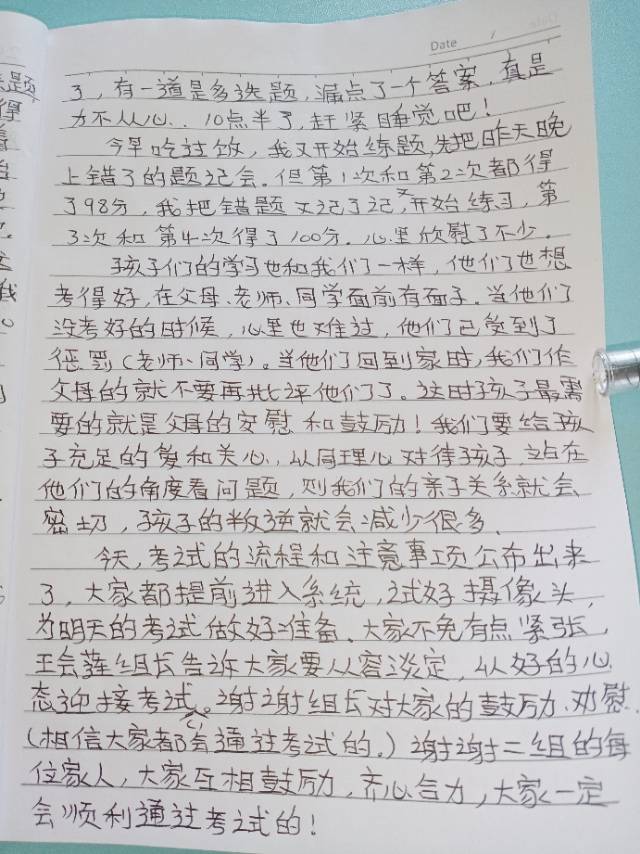 Date
了，有一道是多选题，漏点了一个答案，真是
力不从心．．10点半了，赶紧睡觉吧！
今早吃过饭，我又开始练题，先把昨天晚
上错了的题记会．但第1次和第2次都得
了98分，我把错题又记了记，又开始练习，第
3次和第4次得了100分．心里欣慰了不少．
孩子们的学习也和我们一样，他们也想
考得好，在父母、老师、同学面前有面子．当他们
没考好的时候，心里也难过，他们已受到了
惩罚（老师、同学）。当他们回到家时，我们作
父母的就不要再批评他们了。这时孩子最需
要的就是父母的安慰和鼓励！我们要给孩
子充足的爱和关心，从同理心对待孩子，站在
他们的角度看问题，则我们的亲子关系就会
密切，孩子的叛逆就会减少很多．
今天，考试的流程和注意事项公布出来
了，大家都提前进入系统，试好摄像头，
为明天的考试做好准备．大家不免有点紧张，
王会莲组长告诉大家要从容淡定，以好的心
态迎接考试。谢谢组长对大家的鼓励、劝慰．
（相信大家都会通过考试的。）谢谢二组的每
位家人，大家互相鼓励，齐心合力，大家一定
会顺利通过考试的！
题
得
我